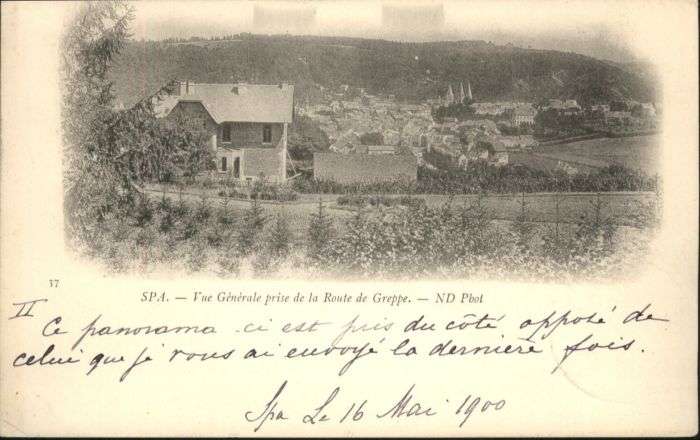 37
SPA. — Vue Générale prise de la Route de Greppe. — ND Phot
II
Ce panorama ci est pris du côté opposé de
celui que je vous ai envoyé la dernière fois.
Spa Le 16 Mai 1900